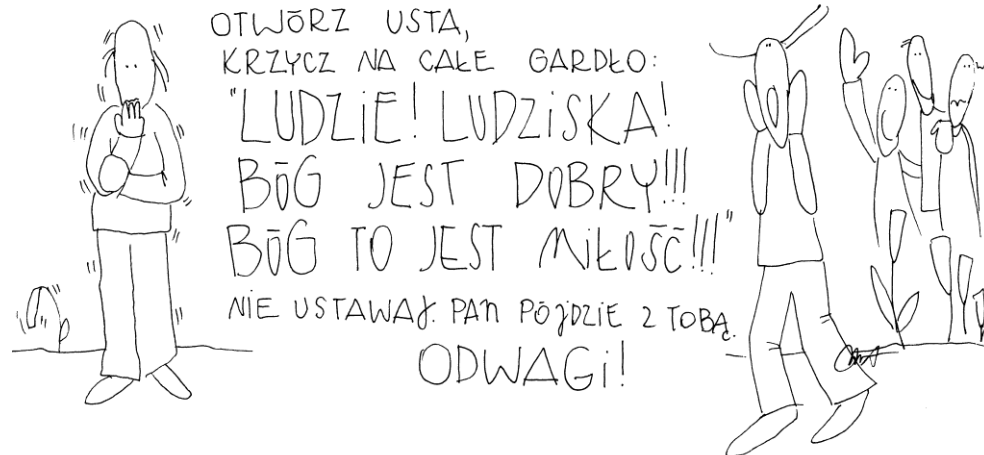 OTWÓRZ USTA,
KRZYCZ NA CAŁE GARDŁO:
"LUDZIE! LUDZISKA!
BÓG JEST DOBRY!!!
BÓG TO JEST MIŁOŚĆ!!!"
NIE USTAWAJ. PAN PÓJDZIE Z TOBĄ.
ODWAGI!